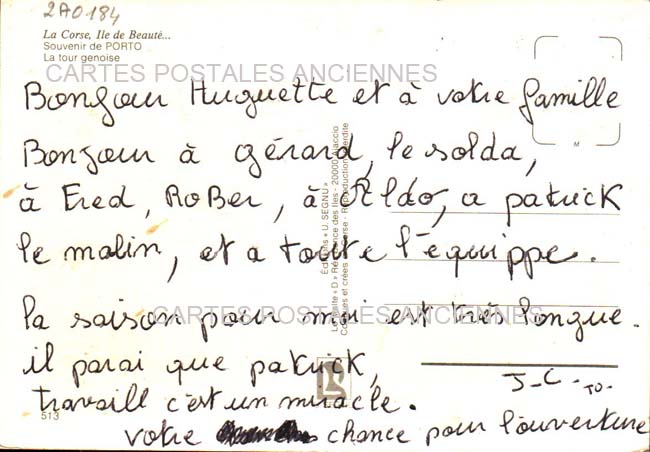 2A0184
La Corse, Ile de Beauté...
Souvenir de PORTO
La tour genoise
CARTES POSTALES ANCIENNES
Bonjour Huguette et à votre famille
Bonjour à gérard, le solda,
à Fred, RoBer, à Aldo, a patrick
le malin, et a toute l'équippe.
la saison pour moi est très longue.
CARTES POSTALES ANCIENNES
il parai que patrick,
travaill c'est un miracle.
J-C-TO-
votre chance pour l'ouverture
513
M
Editions « U. SEGNU »
20000 Ajaccio
Corse - Reproduction interdite